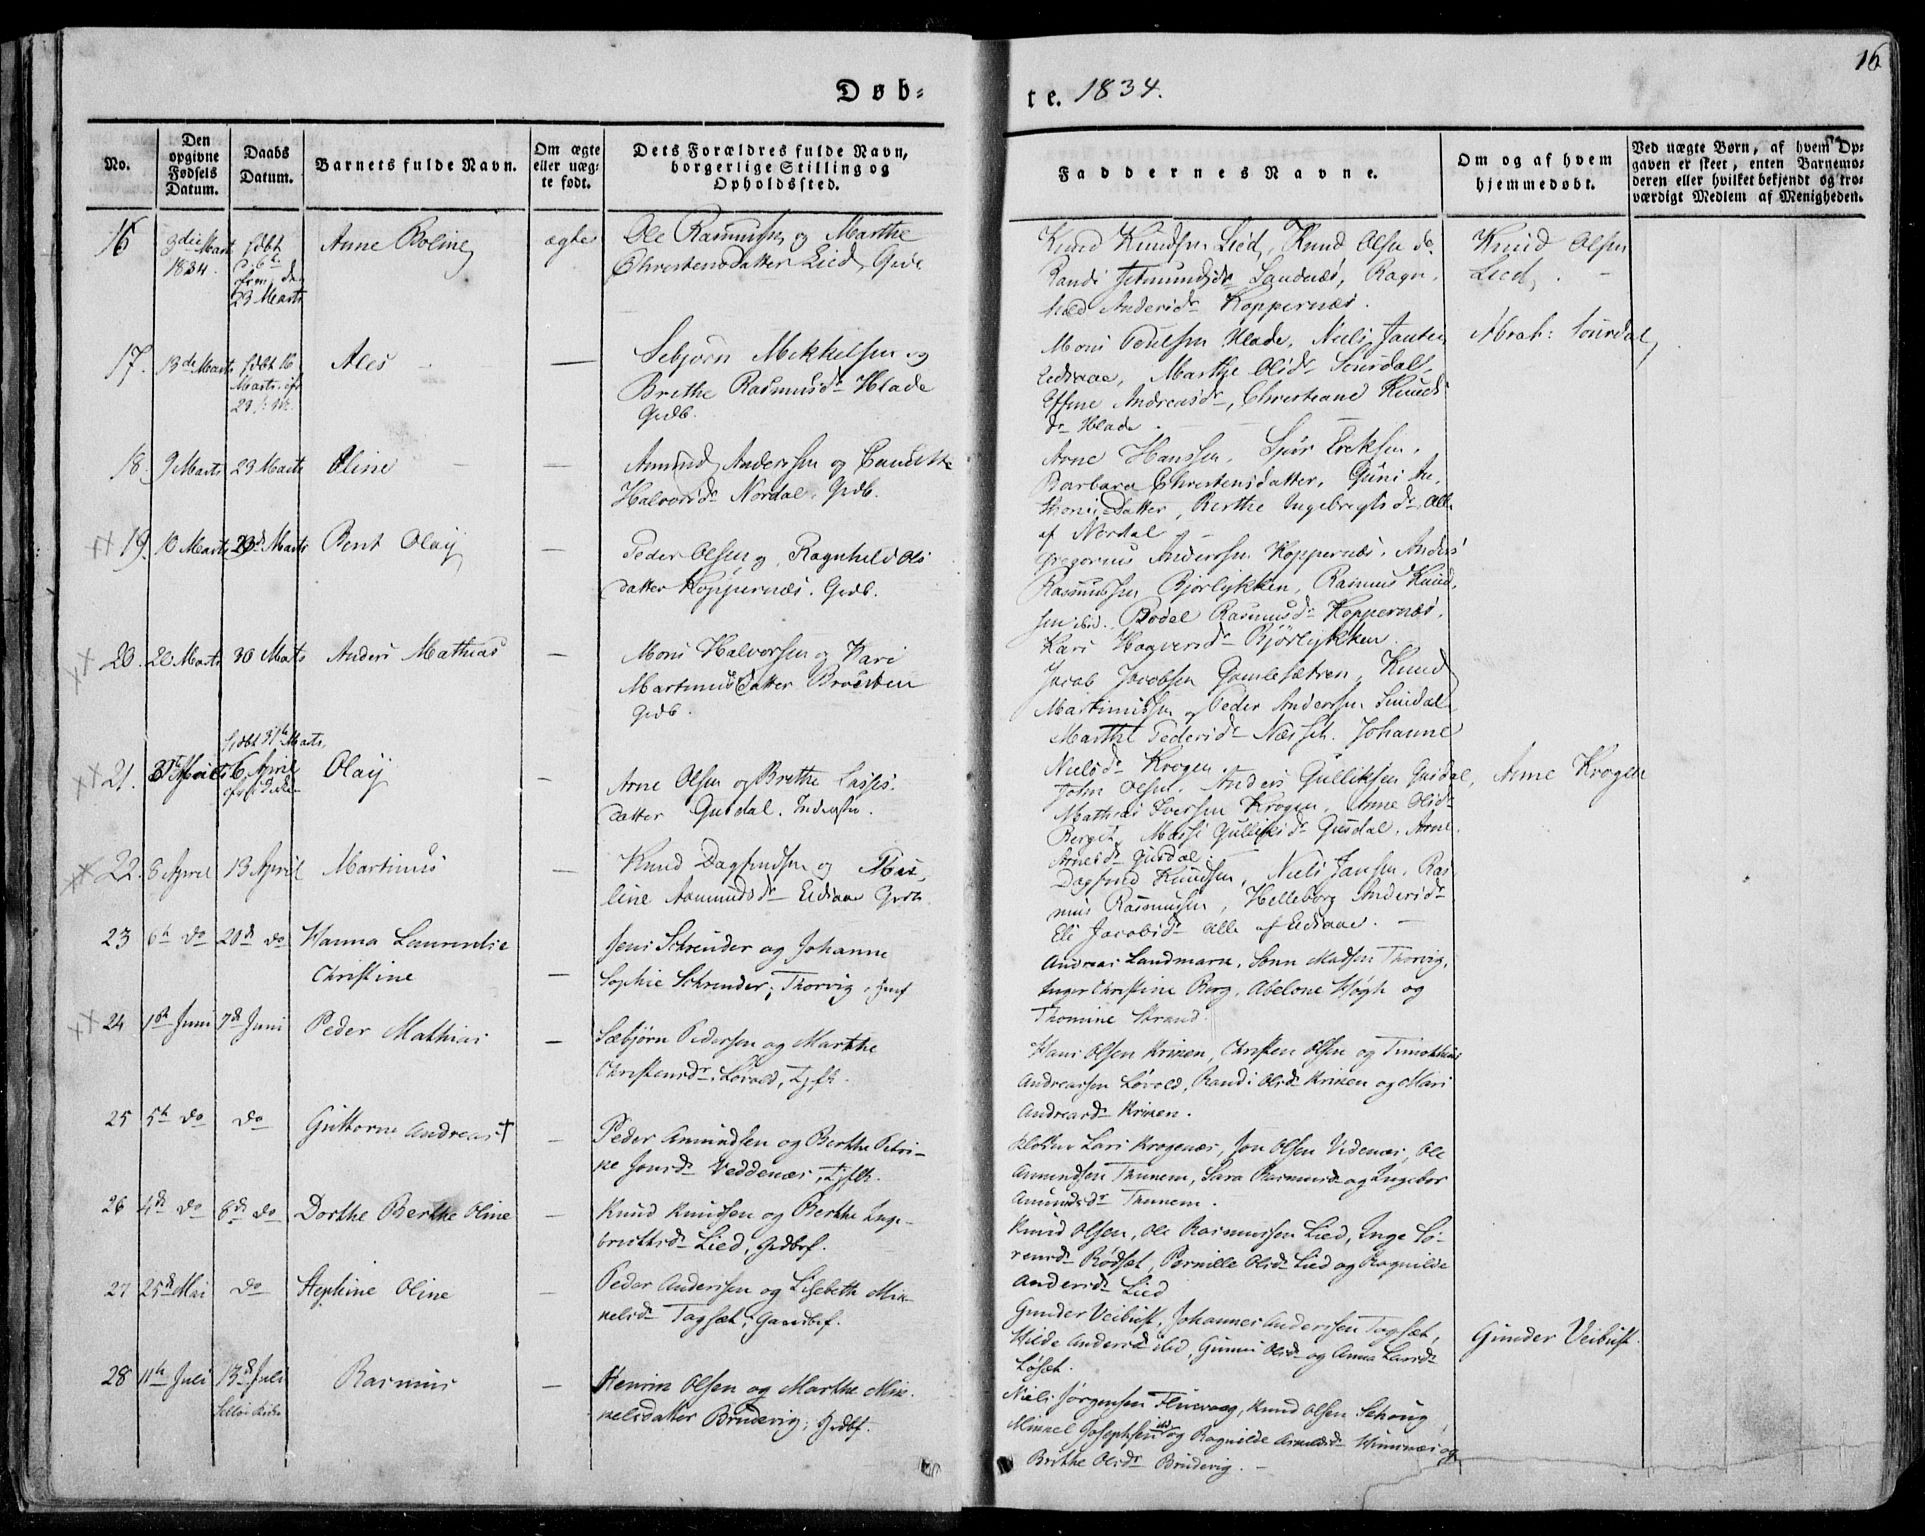 16
Døb-
te. 1834.
No.
Den opgivne Fødsels Datum.
Daabs Datum.
Barnets fulde Navn.
Om ægte eller uæg- te født.
Dets Forældres fulde Navn, borgerlige Stilling og Opholdssted.
Faddernes Navne.
Om og af hvem hjemmedøbt.
Ved uægte Børn, af hvem Op-
gaven er skeet, enten Barnemo-
deren eller hvilket bekjendt og tro-
værdigt Medlem af Menigheden.
16
3die Mart
1834.
23 Marts
Anne Boline
ægte
Ole Rasmussen og Marthe
Christensdatter Lied, Gdb.
Knud Knudsen Lied, Knud Olsen do
Randi Jetmundsdr Sandnæs, Ragn-
hild Andersdr Koppernæs.
Knud Olsen
Lied.
17.
13de Marts
døbt 16
Marts
23
Ales
—
Sebjørn Mikkelsen og
Brethe Rasmusdr Hlade
Grdb.
Mons Poulsen Hlade, Niels Jansen
Eidsaae, Marthe Olsdr Sourdal,
Andreasdr, Christiane Knuds
dr Hlade.
Abrah: Sourdal
18.
9 Marts
23 Marts
Oline
—
Amund Anderssen og
Halvorsdr Nordal. Grdb.
Arne Hanssen, Sjur Ericksen,
Barbara Christensdatter, Guni
Monsdatter, Berthe Ingebregtsdr, alle
af Nordal
19.
10 Marts
23d Marts
Bent Olaij
—
Peder Olsen og Ragnhild Ols
datter Koppernæs. Grdb.
Gregorius Anderssen Koppernæs, Anders
Rasmussen Bjørlykken, Rasmus Knud-
sen ibid. Bodel Rasmusdr Koppernæs,
Kari Hagversdr Bjørlykken
20.
22 Marts
30 Marts
Anders Mathias
—
Mons Halvorsen og Kari
Martinusdatter
Grdb.
Jacob Jacobsen Gamlesætren, Knud
Martinussen og Peder Anderssen
Marthe Pedersdr Næsset. Johanne
Nielsdr Krogen.
21.
31te Marts
6 April
Olaij
—
Arne Olsen og Brethe Lasses-
datter Gusdal.
John Olsen, Anders Gulliksen Gusdal,
Mathias Iversen Krogen, Anne Olsdr
Berget, Massi Gulliksdr Gusdal, Arne
Arnesdr Gusdal.
Arne Krogen
22.
8 April
13 April
Martinus
—
Knud Dagfindsen og
line Aamundsdr Eidsaae Grdb.
Dagfind Knudsen, Niels Jansen, Ras-
mus Rasmussen, Helleborg Andersdr
Eli Jacobsdr alle af Eidsaae.
23
6te do
20de do
Hanna Laurentse
Christine
—
Jens Schrøuder og Johanne
Sophie Schreuder; Thorvig,
Andreas Landmark, Sønn Madsen Thorvig,
Inger Christine Berg, Abelone Høgh og
Thomine Strand.
24
1ste Juni
7de Juni
Peder Mathias
—
Sæbjørn Pedersen og Marthe
Christensdr Løvold,
Hans Olsen Krinen, Christen Olsen og Timotheus
Andreassen Løvold, Randi Olsdr Krinen og Mari
Andreasdr Krinen.
25
5te do
do
Guttorne Andreas †
—
Peder Amundsen og Berthe Petri-
ne Jonsdr Veddenæs,
Klokker Lars Krogenæs, Jon Olsen Vedenæs, Ole
Amundsen Thunem, Sara Rasmusdr og Ingebor
Amundsdr Thunem.
26
4de do
8de do
Dorthe Berthe Oline
—
Knud Knudsen og Berthe Inge-
brittsdr Lied, Grdbrf.
Knud Olsen, Ole Rasmussen Lied, Inge So-
rensdr Rødset, Pernille Olsdr Lied og Ragnilde
Andersdr Lied
27
25de Mai
do
Stephine Oline
—
Peder Anderssen og Lisebeth Mik-
kelsdr Tagsæt, Gaardbrf.
Gunder Veibust, Johannes Anderssen Tagsæt,
Hilde Andersdr ibid, Gunni Olsdr og Anna Larsdr
Løset.
Gunder Veibust.
28
11te Juli
13de Juli
Rasmus
—
Henrik Olsen og Marthe Mik-
kelsdatter Brudevig; Grdbf.
Niels Jørgensen Flisevaag, Knud Olsen Schoug,
Mikkel Josephsen og Ragnilde
Brithe Olsdr Brudevig.